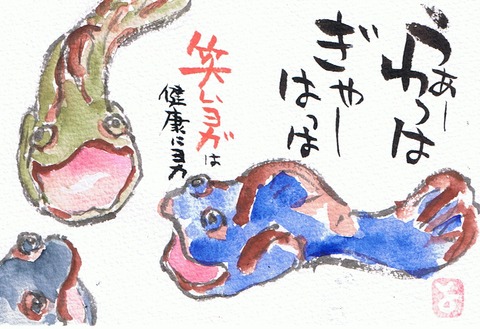 うぁーわっは
ぎゃー
はっは
笑いヨガは
健康にヨカ